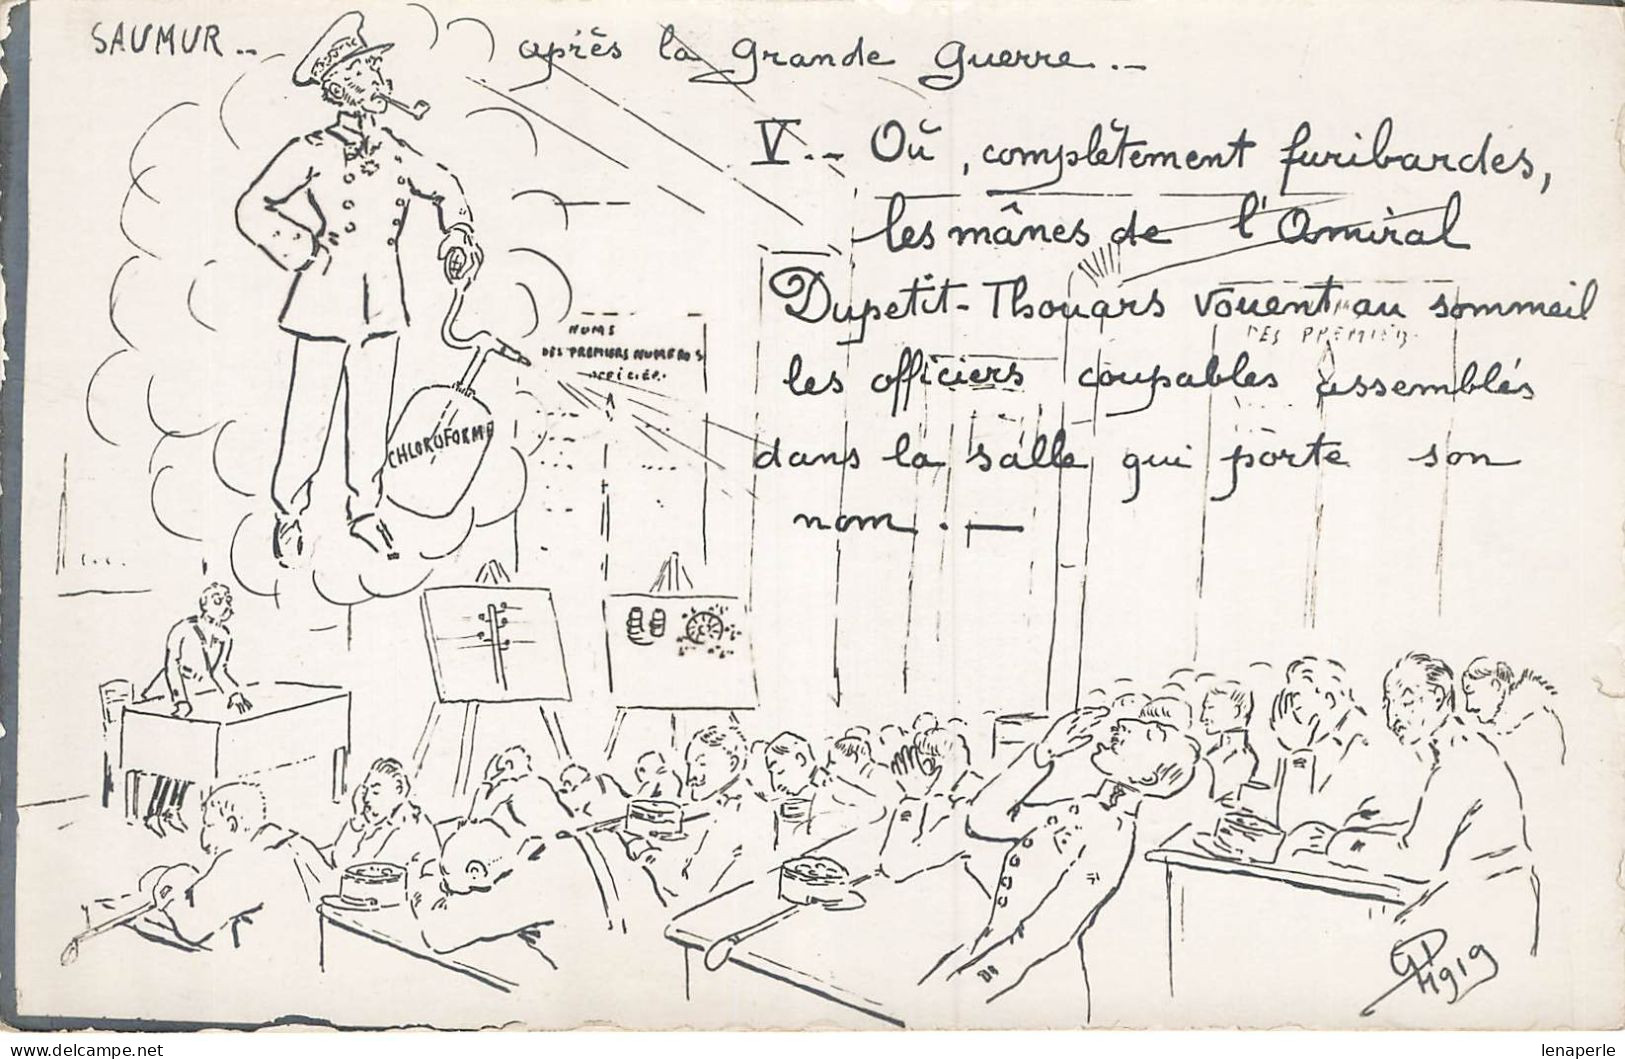 SAUMUR .. après la Grande Guerre ..
V .. Où, complètement furibardes,
les mânes de l'Amiral
Dupetit-Thouars vouent au sommeil
les officiers coupables assemblés
dans la salle qui porte son
nom . —
NOMS
DES PREMIERS NUMEROS
DES PREMIER
CHLOROFORME
1919
lenaperle